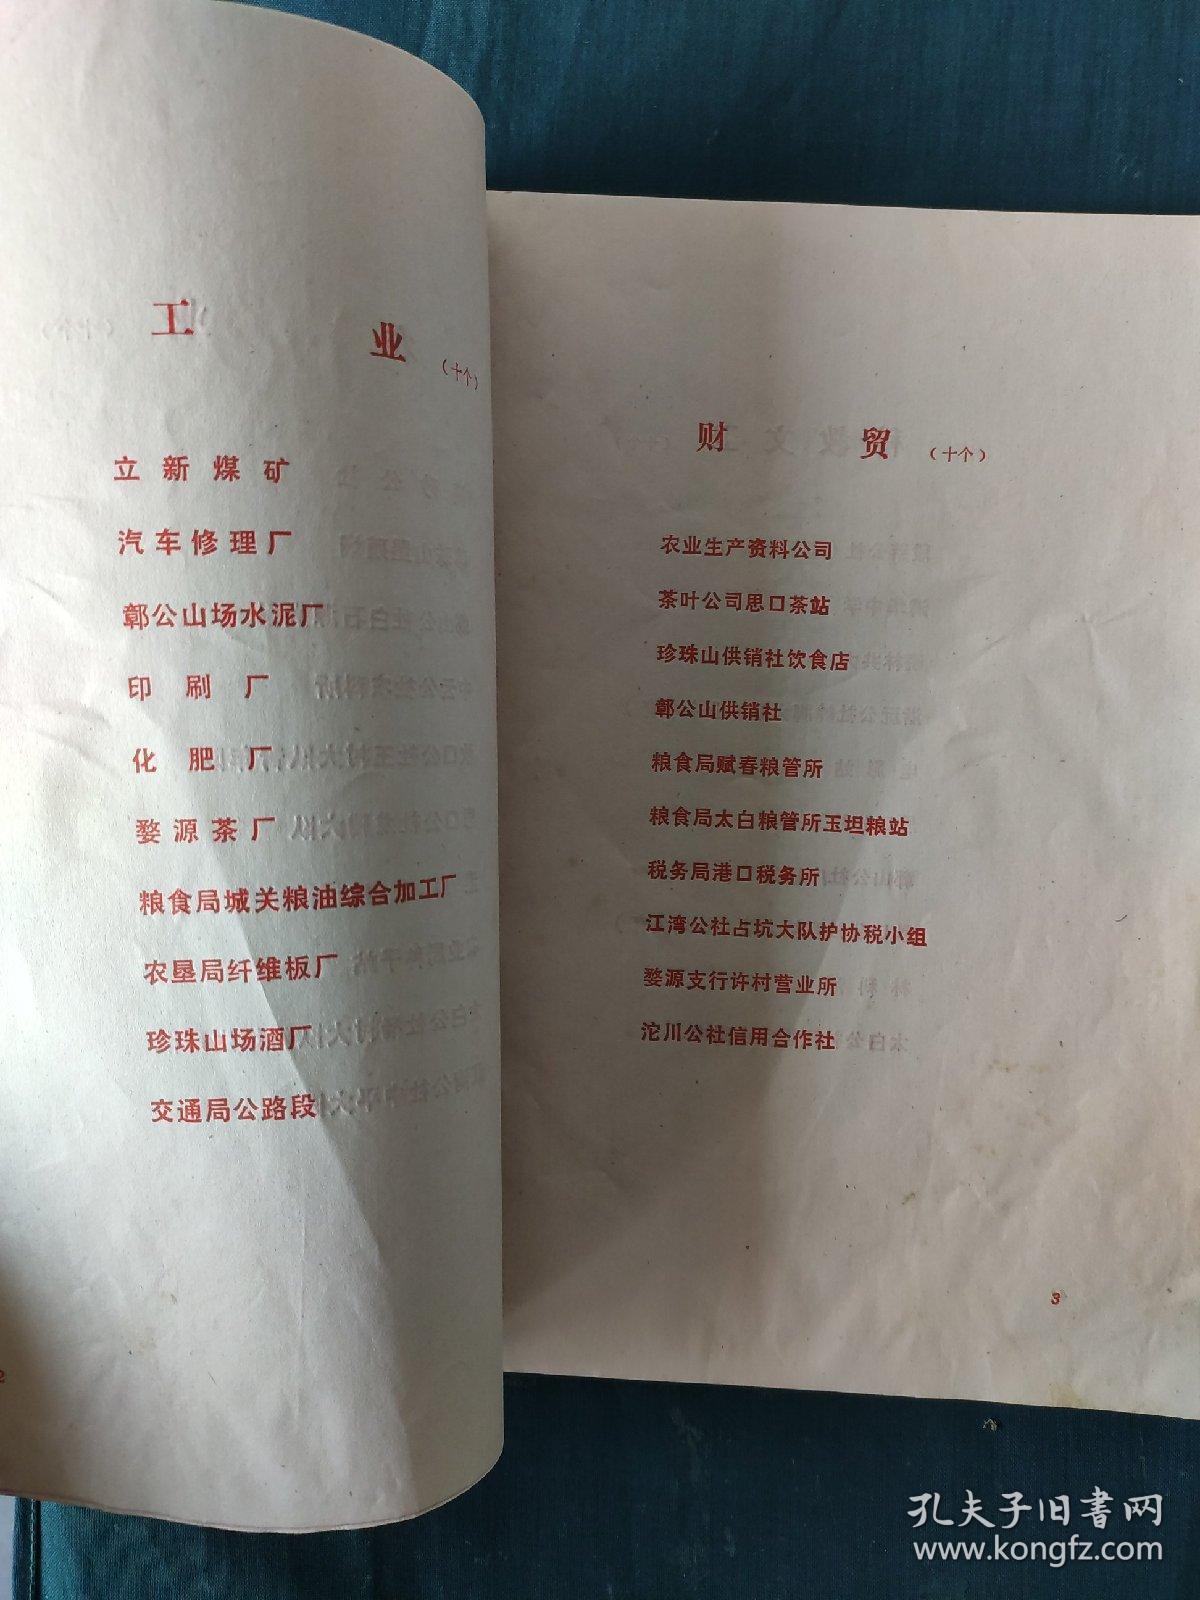 工业（十个）
立新煤矿
汽车修理厂
鄣公山场水泥厂
印刷厂
化肥厂
婺源茶厂
粮食局城关粮油综合加工厂
农垦局纤维板厂
珍珠山场酒厂
交通局公路段
2
财贸（十个）
农业生产资料公司
茶叶公司思口茶站
珍珠山供销社饮食店
鄣公山供销社
粮食局赋春粮管所
粮食局太白粮管所玉坦粮站
税务局港口税务所
江湾公社占坑大队护协税小组
婺源支行许村营业所
沱川公社信用合作社
3
孔夫子旧书网
www.kongfz.com